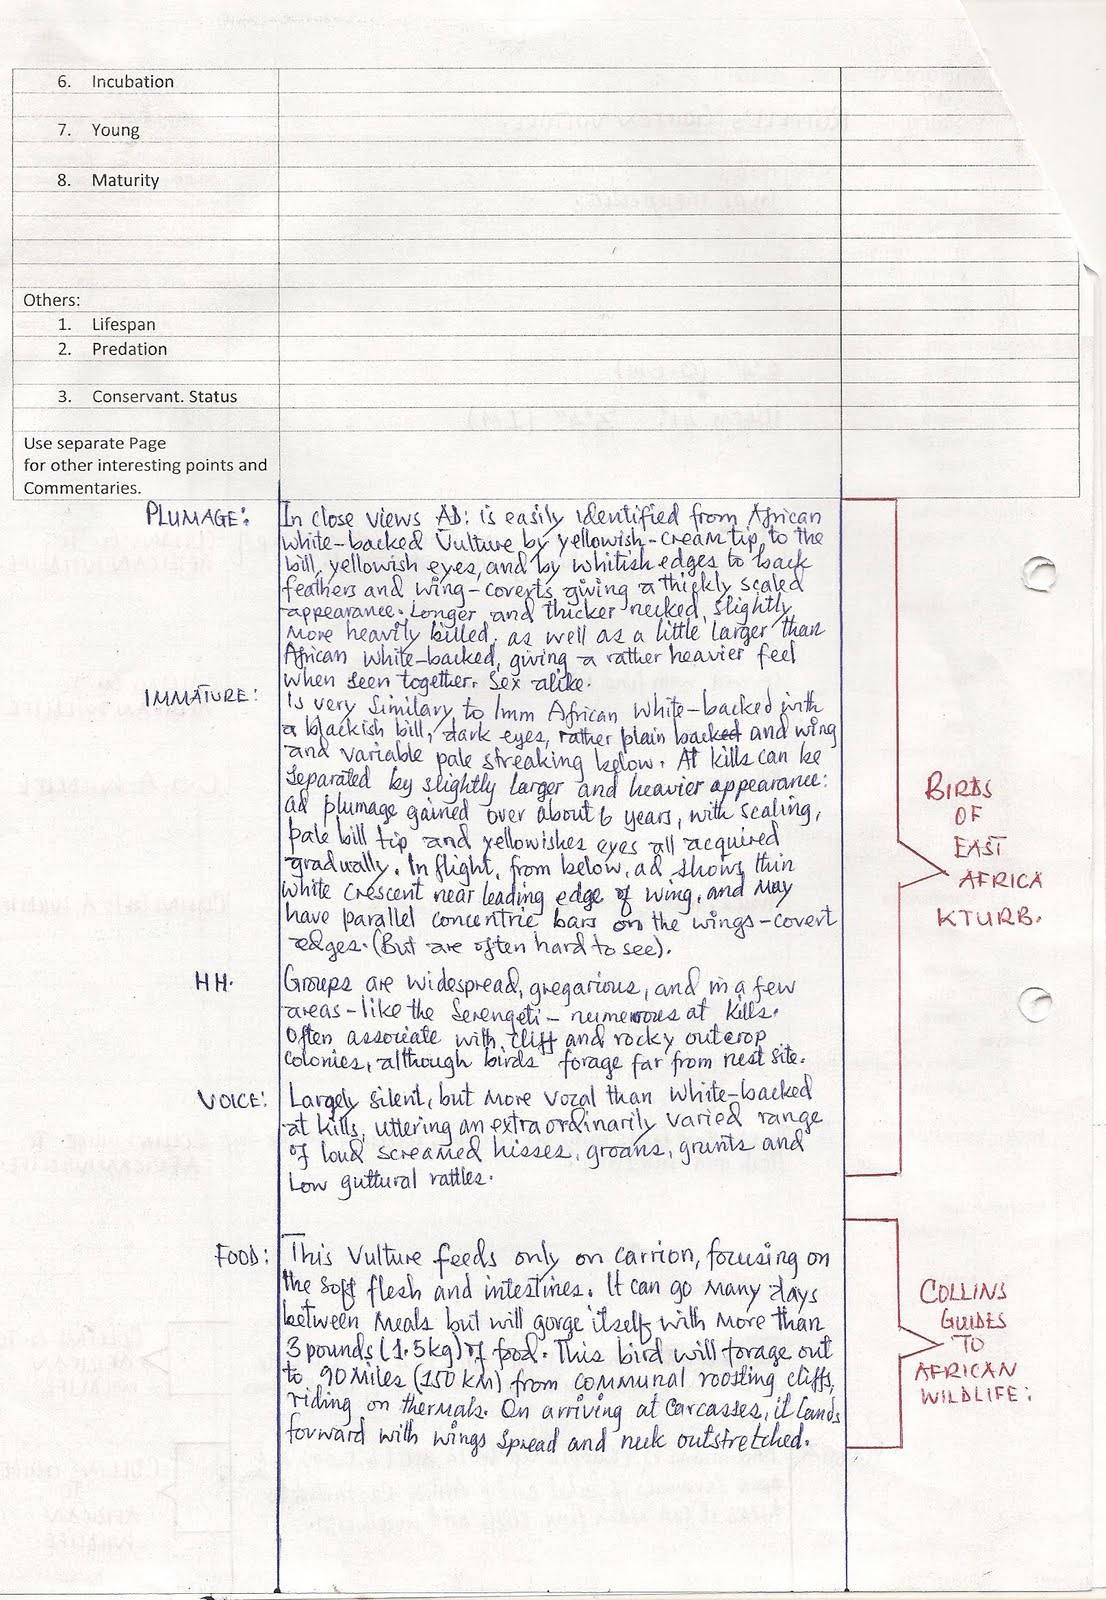 6. Incubation
7. Young
8. Maturity
Others:
1. Lifespan
2. Predation
3. Conservant. Status
Use separate Page
for other interesting points and
Commentaries.
PLUMAGE:
In close views AD: is easily identified from African
white-backed Vulture by yellowish-cream tip to the
bill, yellowish eyes, and by whitish edges to back
feathers and wing-coverts giving a thickly scaled
appearance. Longer and thicker necked, slightly
more heavily billed, as well as a little larger than
African white-backed, giving a rather heavier feel
when seen together. Sex alike.
IMMATURE:
Is very similary to Imm African white-backed with
a blackish bill, dark eyes, rather plain backed and wing
and variable pale streaking below. At kills can be
separated by slightly larger and heavier appearance:
ad plumage gained over about 6 years, with scaling,
pale bill tip and yellowishes eyes all acquired
gradually. In flight, from below, ad shows thin
white crescent near leading edge of wing, and may
have parallel concentric bars on the wings-covert
edges. (But are often hard to see).
HH.
Groups are widespread, gregarious, and in a few
areas-like the Serengeti- numerous at kills.
Often associate with cliff and rocky outcrop
colonies, although birds forage far from nest site.
VOICE:
Largely silent, but more vocal than white-backed
at kills, uttering an extraordinarily varied range
of loud screamed hisses, groans, grunts and
low guttural rattles.
BIRDS
OF
EAST
AFRICA
KTURB.
FOOD:
This Vulture feeds only on carrion, focusing on
the soft flesh and intestines. It can go many days
between meals but will gorge itself with more than
3 pounds (1.5kg) of food. This bird will forage out
to 90 Miles (150 km) from communal roosting cliffs,
riding on thermals. On arriving at carcasses, it lands
forward with wings spread and neck outstretched.
COLLINS
GUIDES
TO
AFRICAN
WILDLIFE: